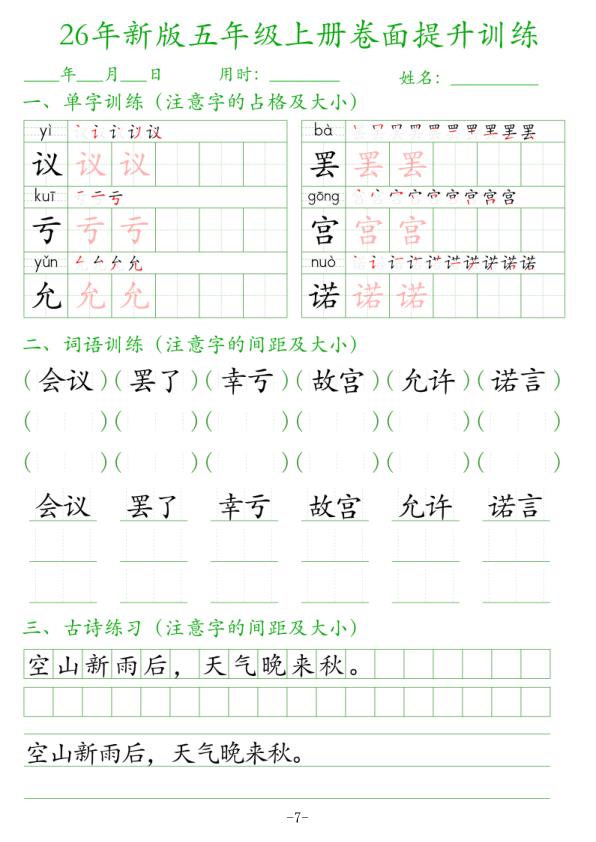 26年新版五年级上册卷面提升训练
____年___月___日 用时：________ 姓名：__________
一、单字训练（注意字的占格及大小）
yì bà
议 议 议 罢 罢 罢
kuī gōng
亏 亏 亏 宫 宫 宫
yǔn nuò
允 允 允 诺 诺 诺
二、词语训练（注意字的间距及大小）
（会议）（罢了）（幸亏）（故宫）（允许）（诺言）
（ ）（ ）（ ）（ ）（ ）（ ）
（ ）（ ）（ ）（ ）（ ）（ ）
会议 罢了 幸亏 故宫 允许 诺言
三、古诗练习（注意字的间距及大小）
空山新雨后，天气晚来秋。
空山新雨后，天气晚来秋。
-7-